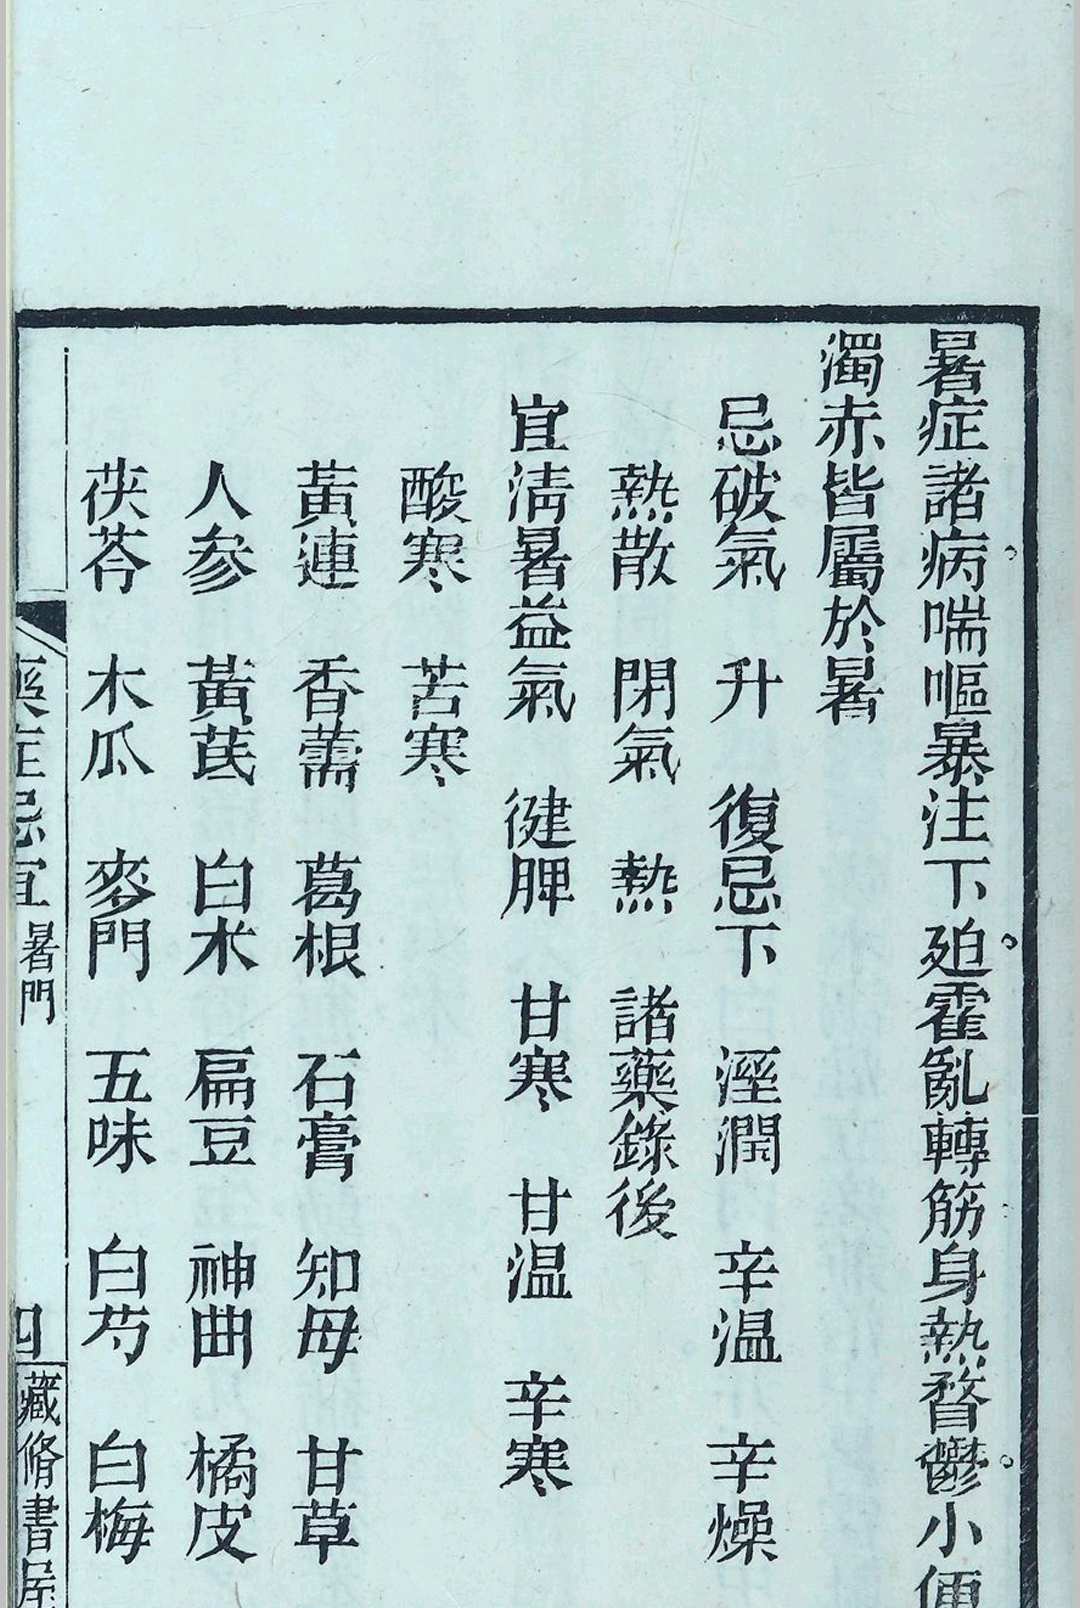 暑症諸病喘嘔暴注下廹霍亂轉筋身熱瞀鬱小便
濁赤皆屬於暑
忌破氣 升 復忌下 溼潤 辛温 辛燥
熱散 閉氣 熱 諸藥錄後
宜淸暑益氣 健脾 甘寒 甘温 辛寒
酸寒 苦寒
黃連 香薷 葛根 石膏 知母 甘草
人參 黃芪 白朮 扁豆 神曲 橘皮
茯苓 木瓜 麥門 五味 白芍 白梅
藥症忌宜 暑門 四 藏脩書屋